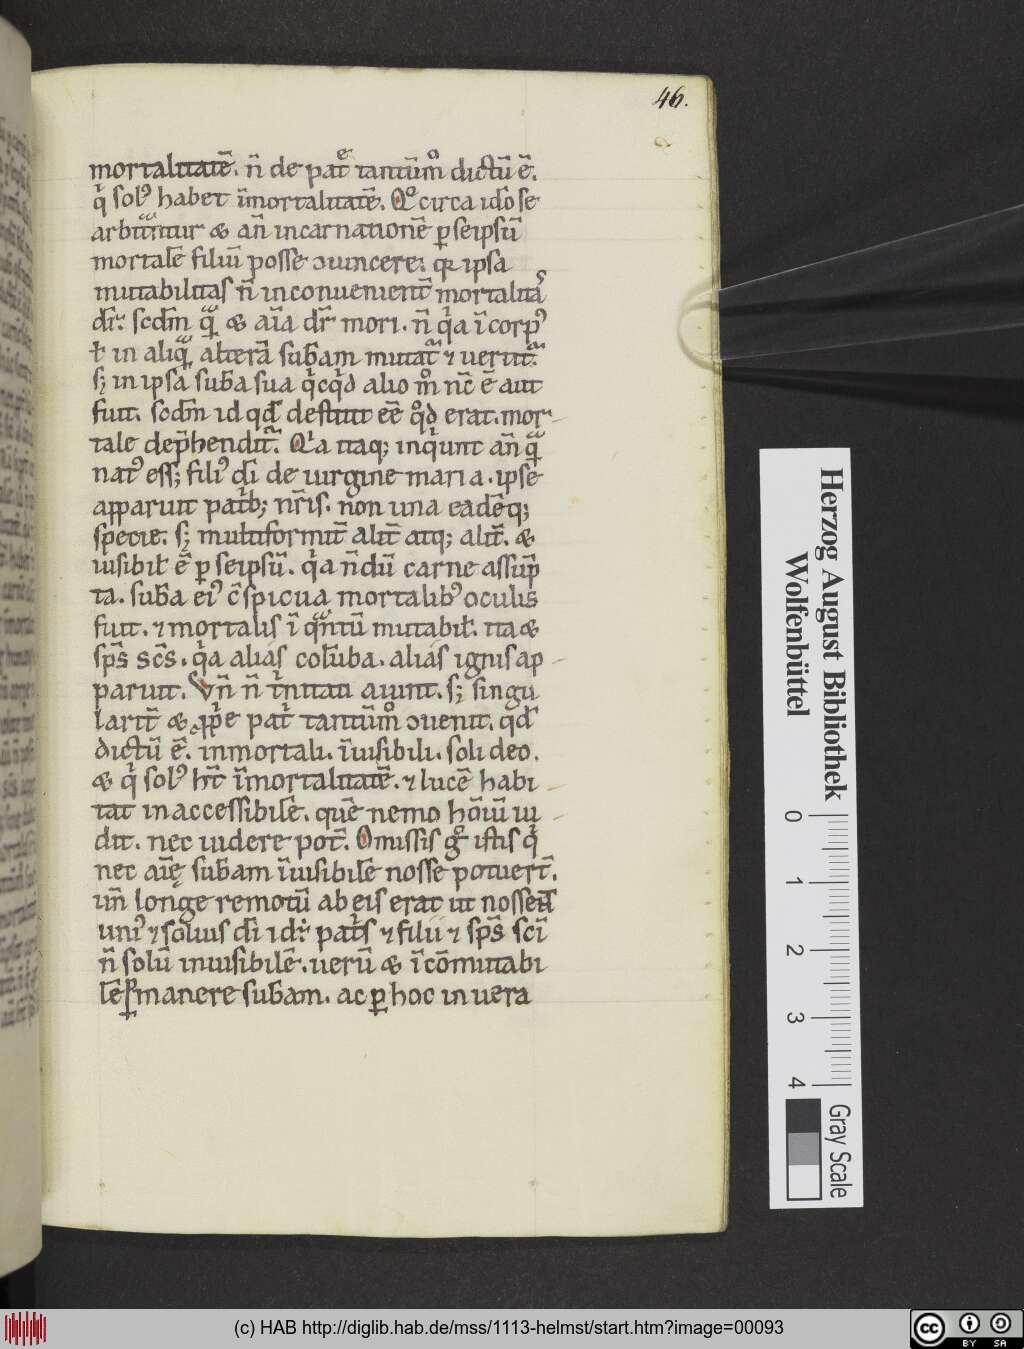 46.
mortalitatē. n̄ de patͤ tantūmͦ dictū ē.
q̇ solꝰ habet īmortalitatē. Qͤ circa id̄o se
arbitͣntur & an̄ incarnationē ꝑ seipsū
mortalē filiū posse ↄuincere. qꝛ ipsa
mutabilitas n̄ inconuenient̄ mortalitaˢ
dr̄. scdm̄ qͣ & aīa dr̄ mori. n̄ qͥa ī corpꝰ
ł in aliqͣ alterā sub̄am mutatͣ ⁊ uertitͣ
sꝫ in ipsa sub̄a sua qͥcqͥd alio mͦ nc̄ ē aut
fuit. scdm̄ id qd̄ destitit eē qͦd erat. mor-
tale dep̄hendit̄. Qͥa itaqꝫ inqͥunt an̄qͣ
natꝰ essꝫ filiꝰ dī de uirgine maria. ipse
apparuit patͥbꝫ nr̄is. non una eadēqꝫ
specie. sꝫ multiformit̄ alit̄ atqꝫ alit̄. &
iusibił ē ꝑ seipsū. qͥa n̄dū carne assūp
ta. sub̄a eiꝰ c̄spicua mortalibꝰ oculis
fuit. ⁊ mortalis ī qͣntū mutabił. ita &
sp̄s sc̄s. qͥa alias colūba. alias ignis ap-
paruit. Vn̄ n̄ tͥnitati aiunt. sꝫ singu
larit̄ & ꝓp̄e patͥ tantūmͦ ↄuenit. qd̄
dictū ē. inmortali. īuisibili. soli deo.
& qͥ solꝰ ht̄ īmortalitatē. ⁊ lucē habi-
tat inaccessibilē. quē nemo hoīū ui-
dit. nec uidere pot̄. Omissis gͦ istis qͥ
nec aīę sub̄am īuisibilē nosse potuer̄t.
un̄ longe remotū ab eis erat ut nossent
uniꝰ ⁊ solius dī id ē patͥs ⁊ filii ⁊ sp̄s sc̄i
n̄ solū inuisibilē. uerū & īcōmutabi
lē ꝑmanere sub̄am. ac ꝑ hoc in uera
Herzog August Bibliothek
Wolfenbüttel
0 1 2 3 4
Gray Scale
(c) HAB http://diglib.hab.de/mss/1113-helmst/start.htm?image=00093
cc BY SA